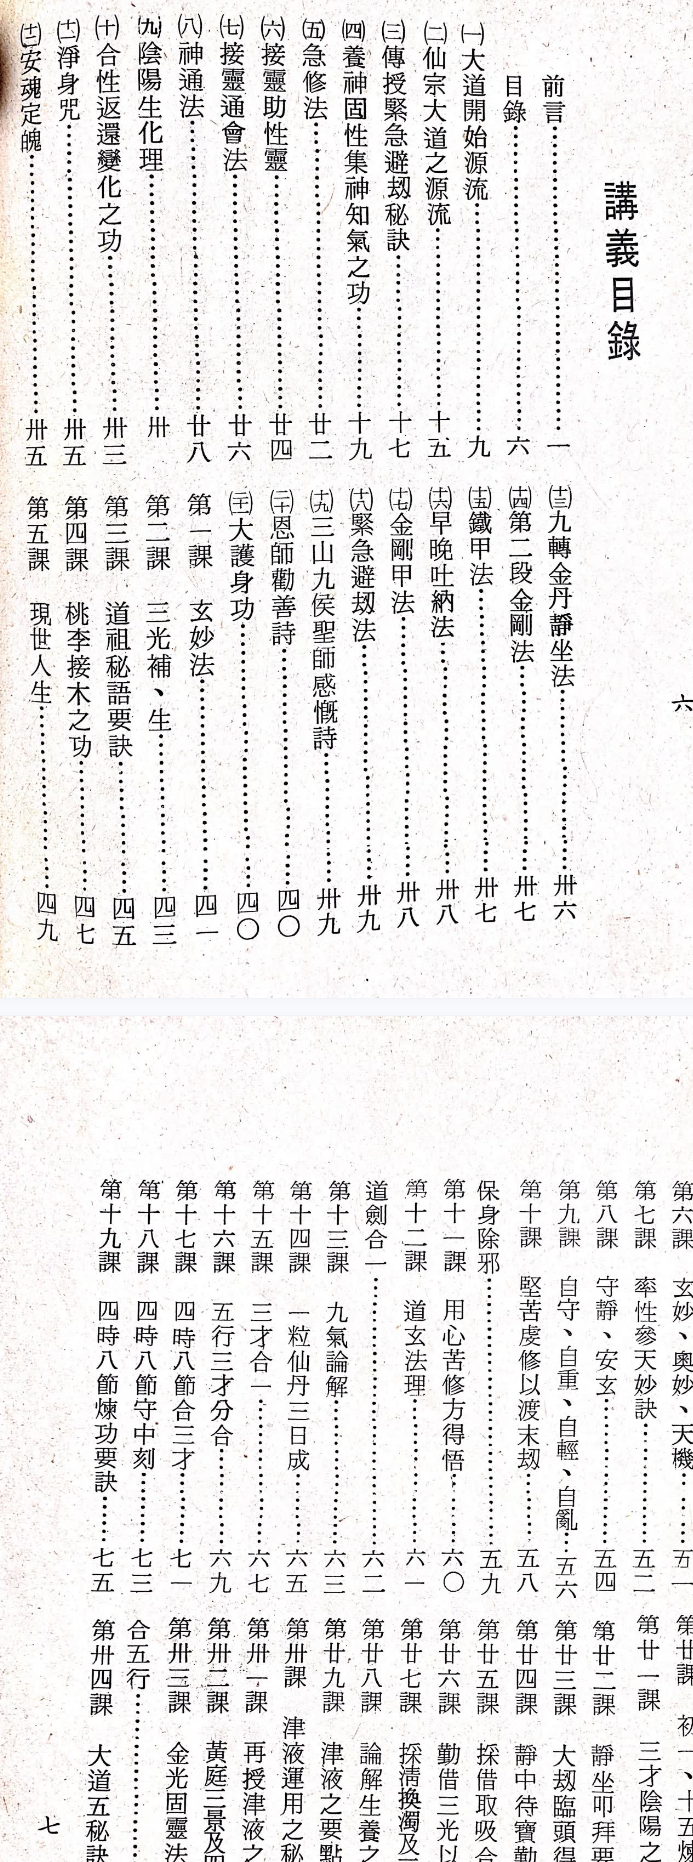 講義目錄
前言⋯⋯一
目錄⋯⋯六
㈠大道開始源流⋯⋯九
㈡仙宗大道之源流⋯⋯十五
㈢傳授緊急避刼秘訣⋯⋯十七
㈣養神固性集神知氣之功⋯⋯十九
㈤急修法⋯⋯廿二
㈥接靈助性靈⋯⋯廿四
㈦接靈通會法⋯⋯廿六
㈧神通法⋯⋯廿八
㈨陰陽生化理⋯⋯卅
㈩合性返還變化之功⋯⋯卅三
(十一)淨身咒⋯⋯卅五
(十二)安魂定魄⋯⋯卅五
(十三)九轉金丹靜坐法⋯⋯卅六
(十四)第二段金剛法⋯⋯卅七
(十五)鐵甲法⋯⋯卅七
(十六)早晚吐納法⋯⋯卅八
(十七)金剛甲法⋯⋯卅八
(十八)緊急避刼法⋯⋯卅九
(十九)三山九侯聖師感慨詩⋯⋯卅九
(二十)恩師勸善詩⋯⋯四〇
大護身功⋯⋯四〇
第一課　玄妙法⋯⋯四一
第二課　三光補、生⋯⋯四三
第三課　道祖秘語要訣⋯⋯四五
第四課　桃李接木之功⋯⋯四七
第五課　現世人生⋯⋯四九
六
第六課　玄妙、奧妙、天機⋯⋯五一
第七課　率性參天妙訣⋯⋯五二
第八課　守靜、安玄⋯⋯五四
第九課　自守、自重、自輕、自亂⋯⋯五六
第十課　堅苦虔修以渡末刼⋯⋯五八
保身除邪⋯⋯五九
第十一課　用心苦修方得悟⋯⋯六〇
第十二課　道玄法理⋯⋯六一
道劍合一⋯⋯六二
第十三課　九氣論解⋯⋯六三
第十四課　一粒仙丹三日成⋯⋯六五
第十五課　三才合一⋯⋯六七
第十六課　五行三才分合⋯⋯六九
第十七課　四時八節合三才⋯⋯七一
第十八課　四時八節守中刻⋯⋯七三
第十九課　四時八節煉功要訣⋯⋯七五
第廿課　初一、十五煉
第廿一課　三才陰陽之
第廿二課　靜坐叩拜要
第廿三課　大刼臨頭得
第廿四課　靜中待寶勤
第廿五課　採借取吸合
第廿六課　勤借三光以
第廿七課　採清換濁及
第廿八課　論解生養之
第廿九課　津液之要點
第卅課　津液運用之秘
第卅一課　再授津液之
第卅二課　黃庭三景及四
第卅三課　金光固靈法
合五行⋯⋯
第卅四課　大道五秘訣
七